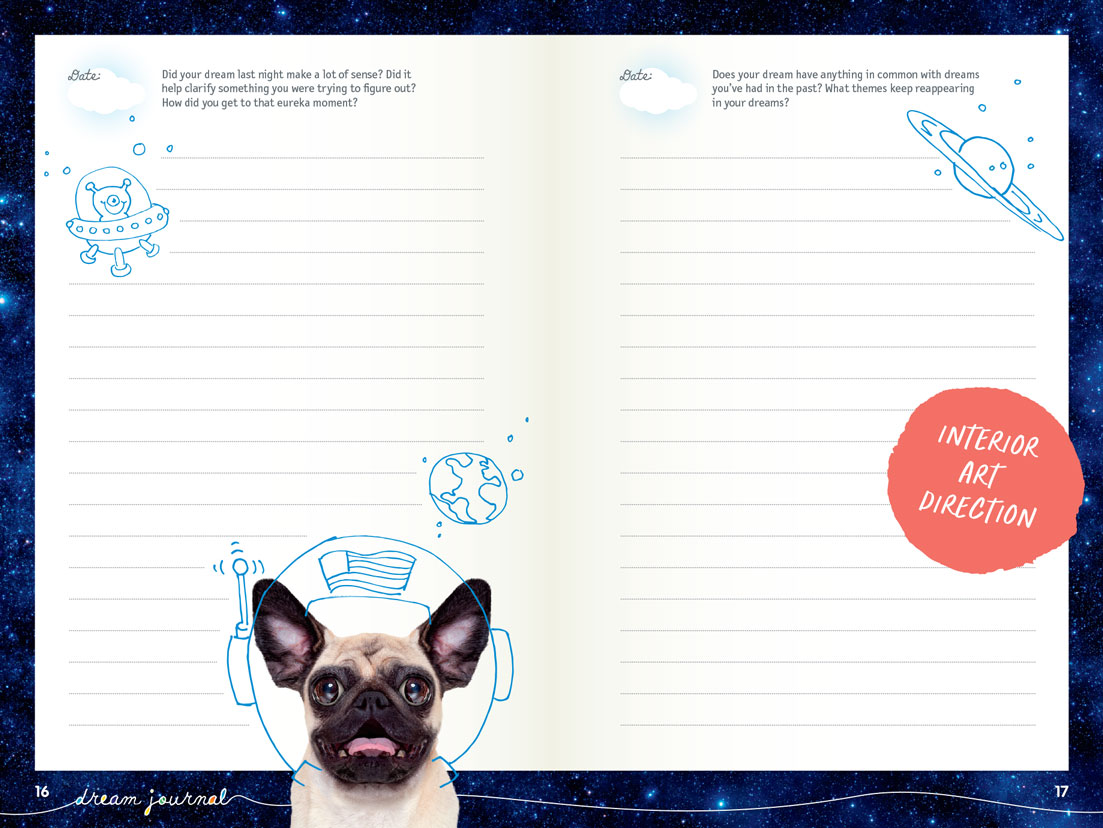 Date:
Did your dream last night make a lot of sense? Did it
help clarify something you were trying to figure out?
How did you get to that eureka moment?
Date:
Does your dream have anything in common with dreams
you've had in the past? What themes keep reappearing
in your dreams?
INTERIOR
ART
DIRECTION
16
dream journal
17